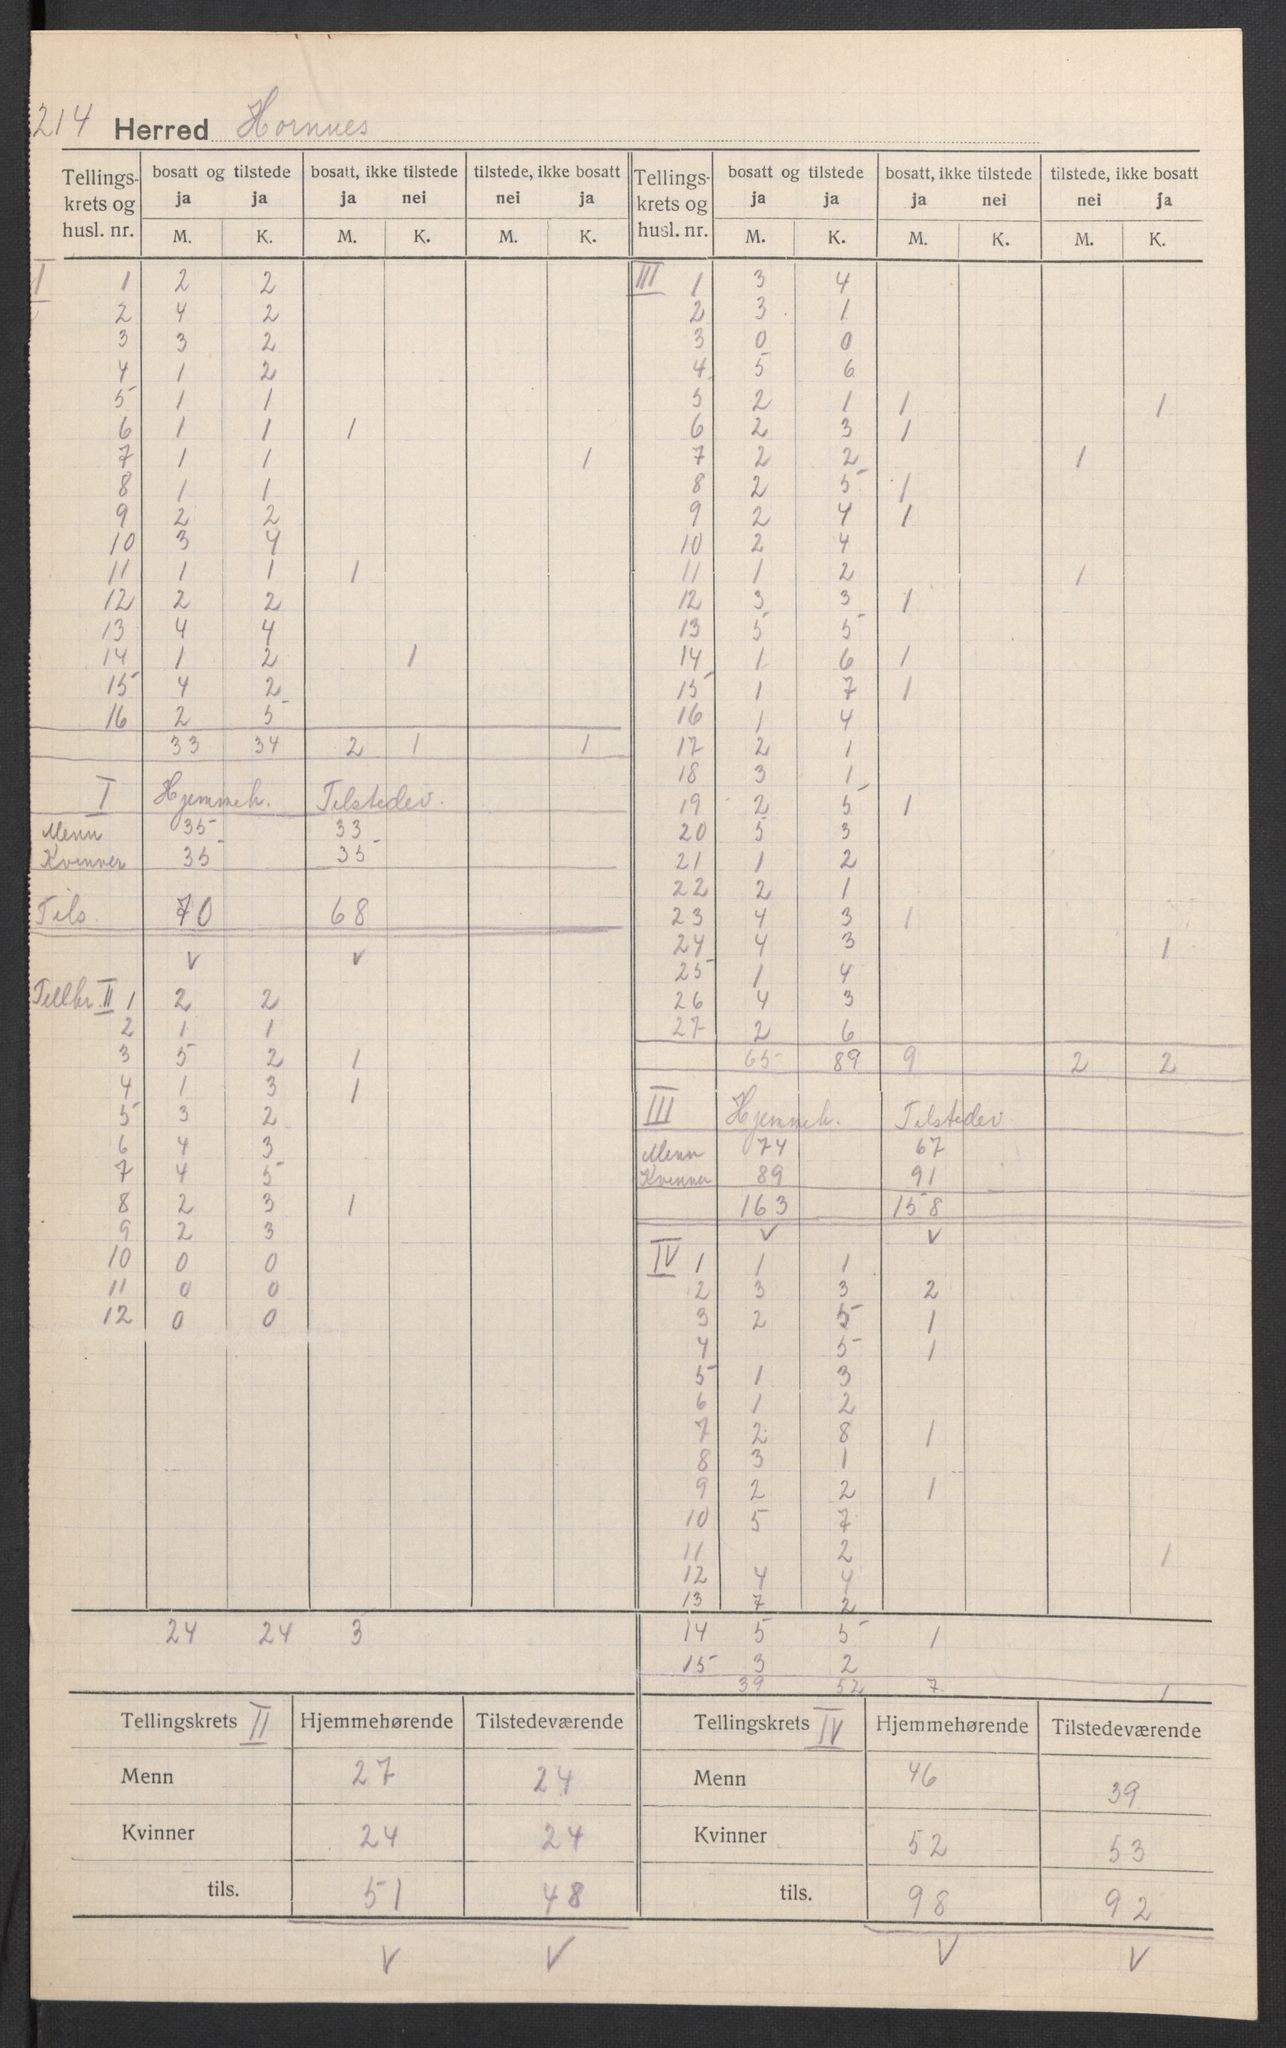 214 Herred Hornnes
Tellings- krets og husl. nr. | bosatt og tilstede ja ja | bosatt, ikke tilstede ja nei | tilstede, ikke bosatt nei ja
M. K. M. K. M. K.
I 1 2 2
2 4 2
3 3 2
4 1 2
5 1 1
6 1 1 1
7 1 1 1
8 1 1
9 2 2
10 3 4
11 1 1 1
12 2 2
13 4 4
14 1 2 1
15 4 2
16 2 5
33 34 2 1 1
I Hjemmeh. Tilstedev.
Menn 35 33
Kvenner 35 35
Tils. 70 68
V V
Tellkr. II 1 2 2
2 1 1
3 5 2 1
4 1 3 1
5 3 2
6 4 3
7 4 5
8 2 3 1
9 2 3
10 0 0
11 0 0
12 0 0
24 24 3
Tellingskrets II Hjemmehørende Tilstedeværende
Menn 27 24
Kvinner 24 24
tils. 51 48
V V
Tellings- krets og husl. nr. | bosatt og tilstede ja ja | bosatt, ikke tilstede ja nei | tilstede, ikke bosatt nei ja
M. K. M. K. M. K.
III 1 3 4
2 3 1
3 0 0
4 5 6
5 2 1 1 1
6 2 3 1
7 2 2 1
8 2 5 1
9 2 4 1
10 2 4
11 1 2 1
12 3 3 1
13 5 5
14 1 6 1
15 1 7 1
16 1 4
17 2 1
18 3 1
19 2 5 1
20 5 3
21 1 2
22 2 1
23 4 3 1
24 4 3 1
25 1 4
26 4 3
27 2 6
65 89 9 2 2
III Hjemmeh. Tilstedev.
Menn 74 67
Kvenner 89 91
163 158
V V
IV 1 1 1
2 3 3 2
3 2 5 1
4 5 1
5 1 3
6 1 2
7 2 8 1
8 3 1
9 2 2 1
10 5 7
11 2 1
12 4 4
13 7 2
14 5 5 1
15 3 2
39 52 7 1
Tellingskrets IV Hjemmehørende Tilstedeværende
Menn 46 39
Kvinner 52 53
tils. 98 92
V V